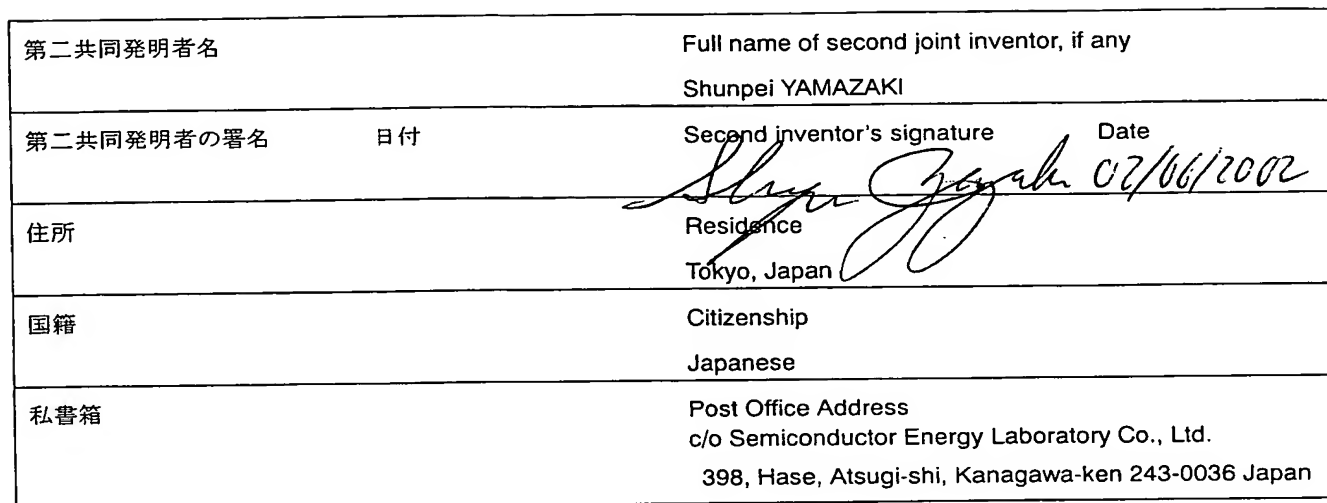 第二共同発明者名
Full name of second joint inventor, if any
Shunpei YAMAZAKI
第二共同発明者の署名 日付
Second inventor's signature Date
02/06/2002
住所
Residence
Tokyo, Japan
国籍
Citizenship
Japanese
私書箱
Post Office Address
c/o Semiconductor Energy Laboratory Co., Ltd.
398, Hase, Atsugi-shi, Kanagawa-ken 243-0036 Japan